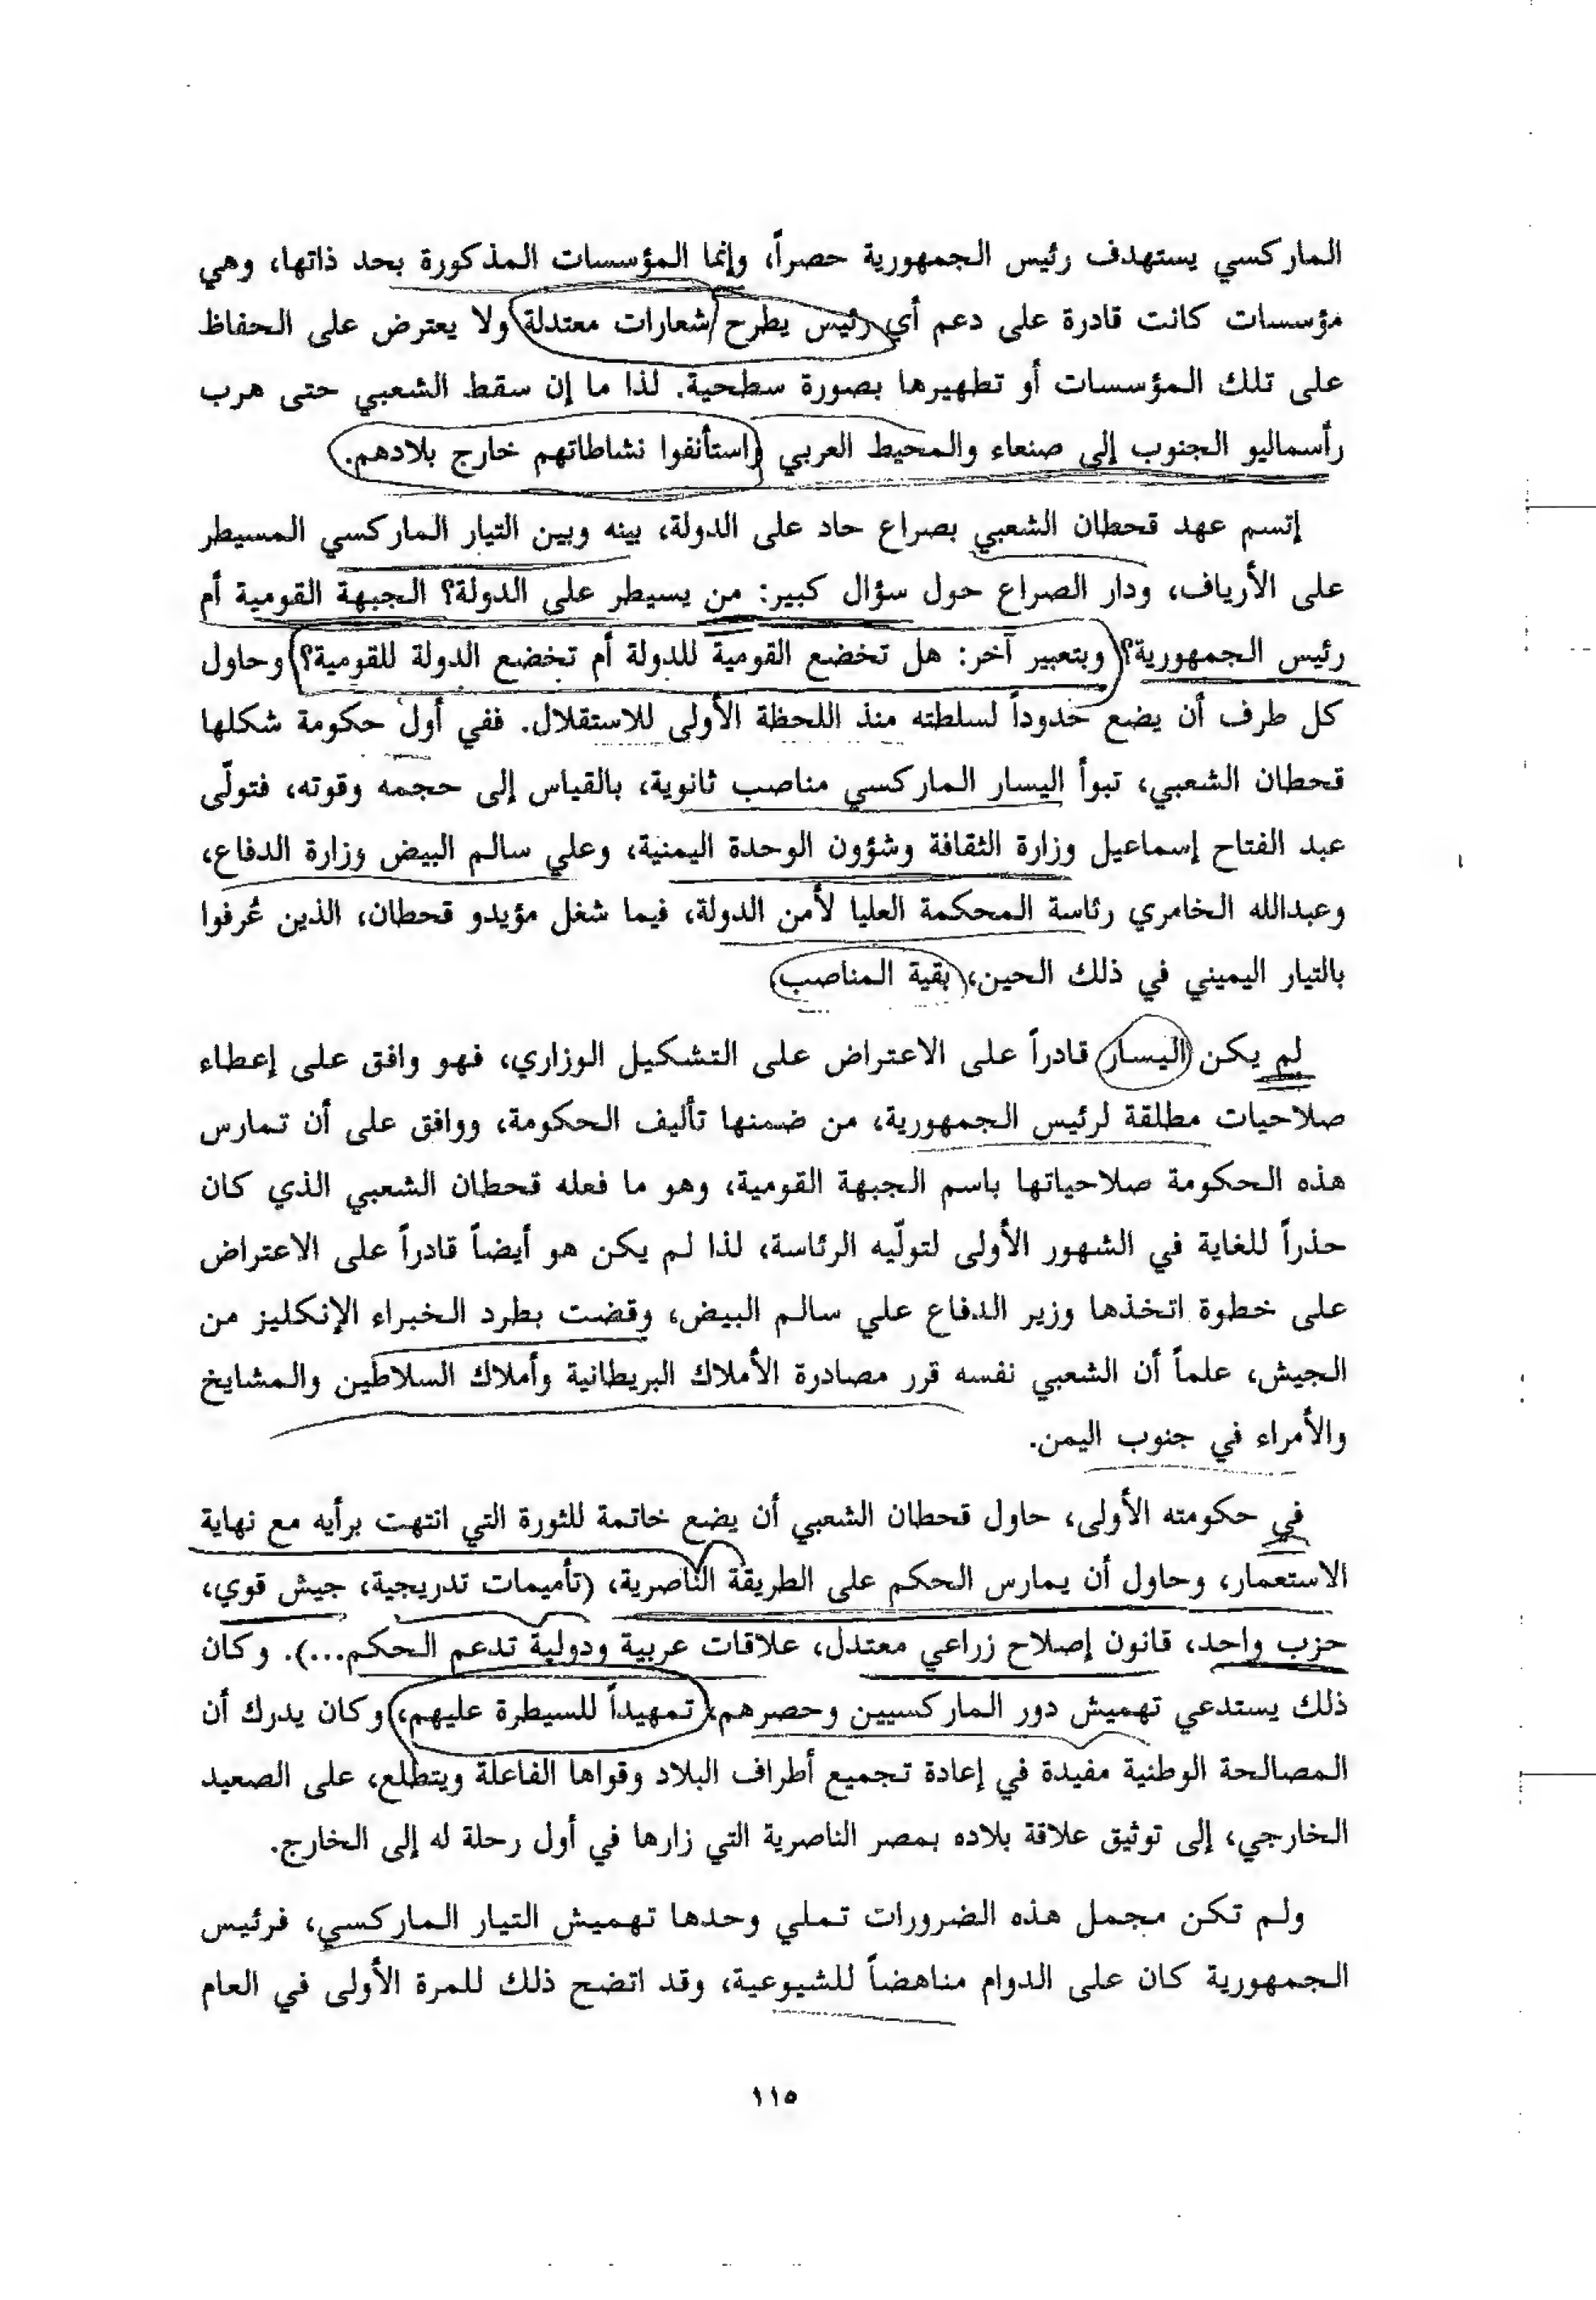 الماركسي يستهدف رئيس الجمهورية حصراً، وإنما المؤسسات المذكورة بحد ذاتها، وهي
مؤسسات كانت قادرة على دعم أي رئيس يطرح شعارات معتدلة ولا يعترض على الحفاظ
على تلك المؤسسات أو تطهيرها بصورة سطحية. لذا ما إن سقط الشعبي حتى هرب
رأسماليو الجنوب إلى صنعاء والمحيط العربي واستأنفوا نشاطاتهم خارج بلادهم.
إتسم عهد قحطان الشعبي بصراع حاد على الدولة، بينه وبين التيار الماركسي المسيطر
على الأرياف، ودار الصراع حول سؤال كبير: من يسيطر على الدولة؟ الجبهة القومية أم
رئيس الجمهورية؟ وبتعبير آخر: هل تخضع القومية للدولة أم تخضع الدولة للقومية؟ وحاول
كل طرف أن يضع حدوداً لسلطته منذ اللحظة الأولى للاستقلال. ففي أول حكومة شكلها
قحطان الشعبي، تبوأ اليسار الماركسي مناصب ثانوية، بالقياس إلى حجمه وقوته، فتولّى
عبد الفتاح إسماعيل وزارة الثقافة وشؤون الوحدة اليمنية، وعلي سالم البيض وزارة الدفاع،
وعبدالله الخامري رئاسة المحكمة العليا لأمن الدولة، فيما شغل مؤيدو قحطان، الذين عُرفوا
بالتيار اليميني في ذلك الحين، بقية المناصب
لم يكن اليسار قادراً على الاعتراض على التشكيل الوزاري، فهو وافق على إعطاء
صلاحيات مطلقة لرئيس الجمهورية، من ضمنها تأليف الحكومة، ووافق على أن تمارس
هذه الحكومة صلاحياتها باسم الجبهة القومية، وهو ما فعله قحطان الشعبي الذي كان
حذراً للغاية في الشهور الأولى لتولّيه الرئاسة، لذا لم يكن هو أيضاً قادراً على الاعتراض
على خطوة اتخذها وزير الدفاع علي سالم البيض، وقضت بطرد الخبراء الإنكليز من
الجيش، علماً أن الشعبي نفسه قرر مصادرة الأملاك البريطانية وأملاك السلاطين والمشايخ
والأمراء في جنوب اليمن.
في حكومته الأولى، حاول قحطان الشعبي أن يضع خاتمة للثورة التي انتهت برأيه مع نهاية
الاستعمار، وحاول أن يمارس الحكم على الطريقة الناصرية، (تأميمات تدريجية، جيش قوي،
حزب واحد، قانون إصلاح زراعي معتدل، علاقات عربية ودولية تدعم الحكم...). وكان
ذلك يستدعي تهميش دور الماركسيين وحصرهم، تمهيداً للسيطرة عليهم، وكان يدرك أن
المصالحة الوطنية مفيدة في إعادة تجميع أطراف البلاد وقواها الفاعلة ويتطلع، على الصعيد
الخارجي، إلى توثيق علاقة بلاده بمصر الناصرية التي زارها في أول رحلة له إلى الخارج.
ولم تكن مجمل هذه الضرورات تملي وحدها تهميش التيار الماركسي، فرئيس
الجمهورية كان على الدوام مناهضاً للشيوعية، وقد اتضح ذلك للمرة الأولى في العام
١١٥